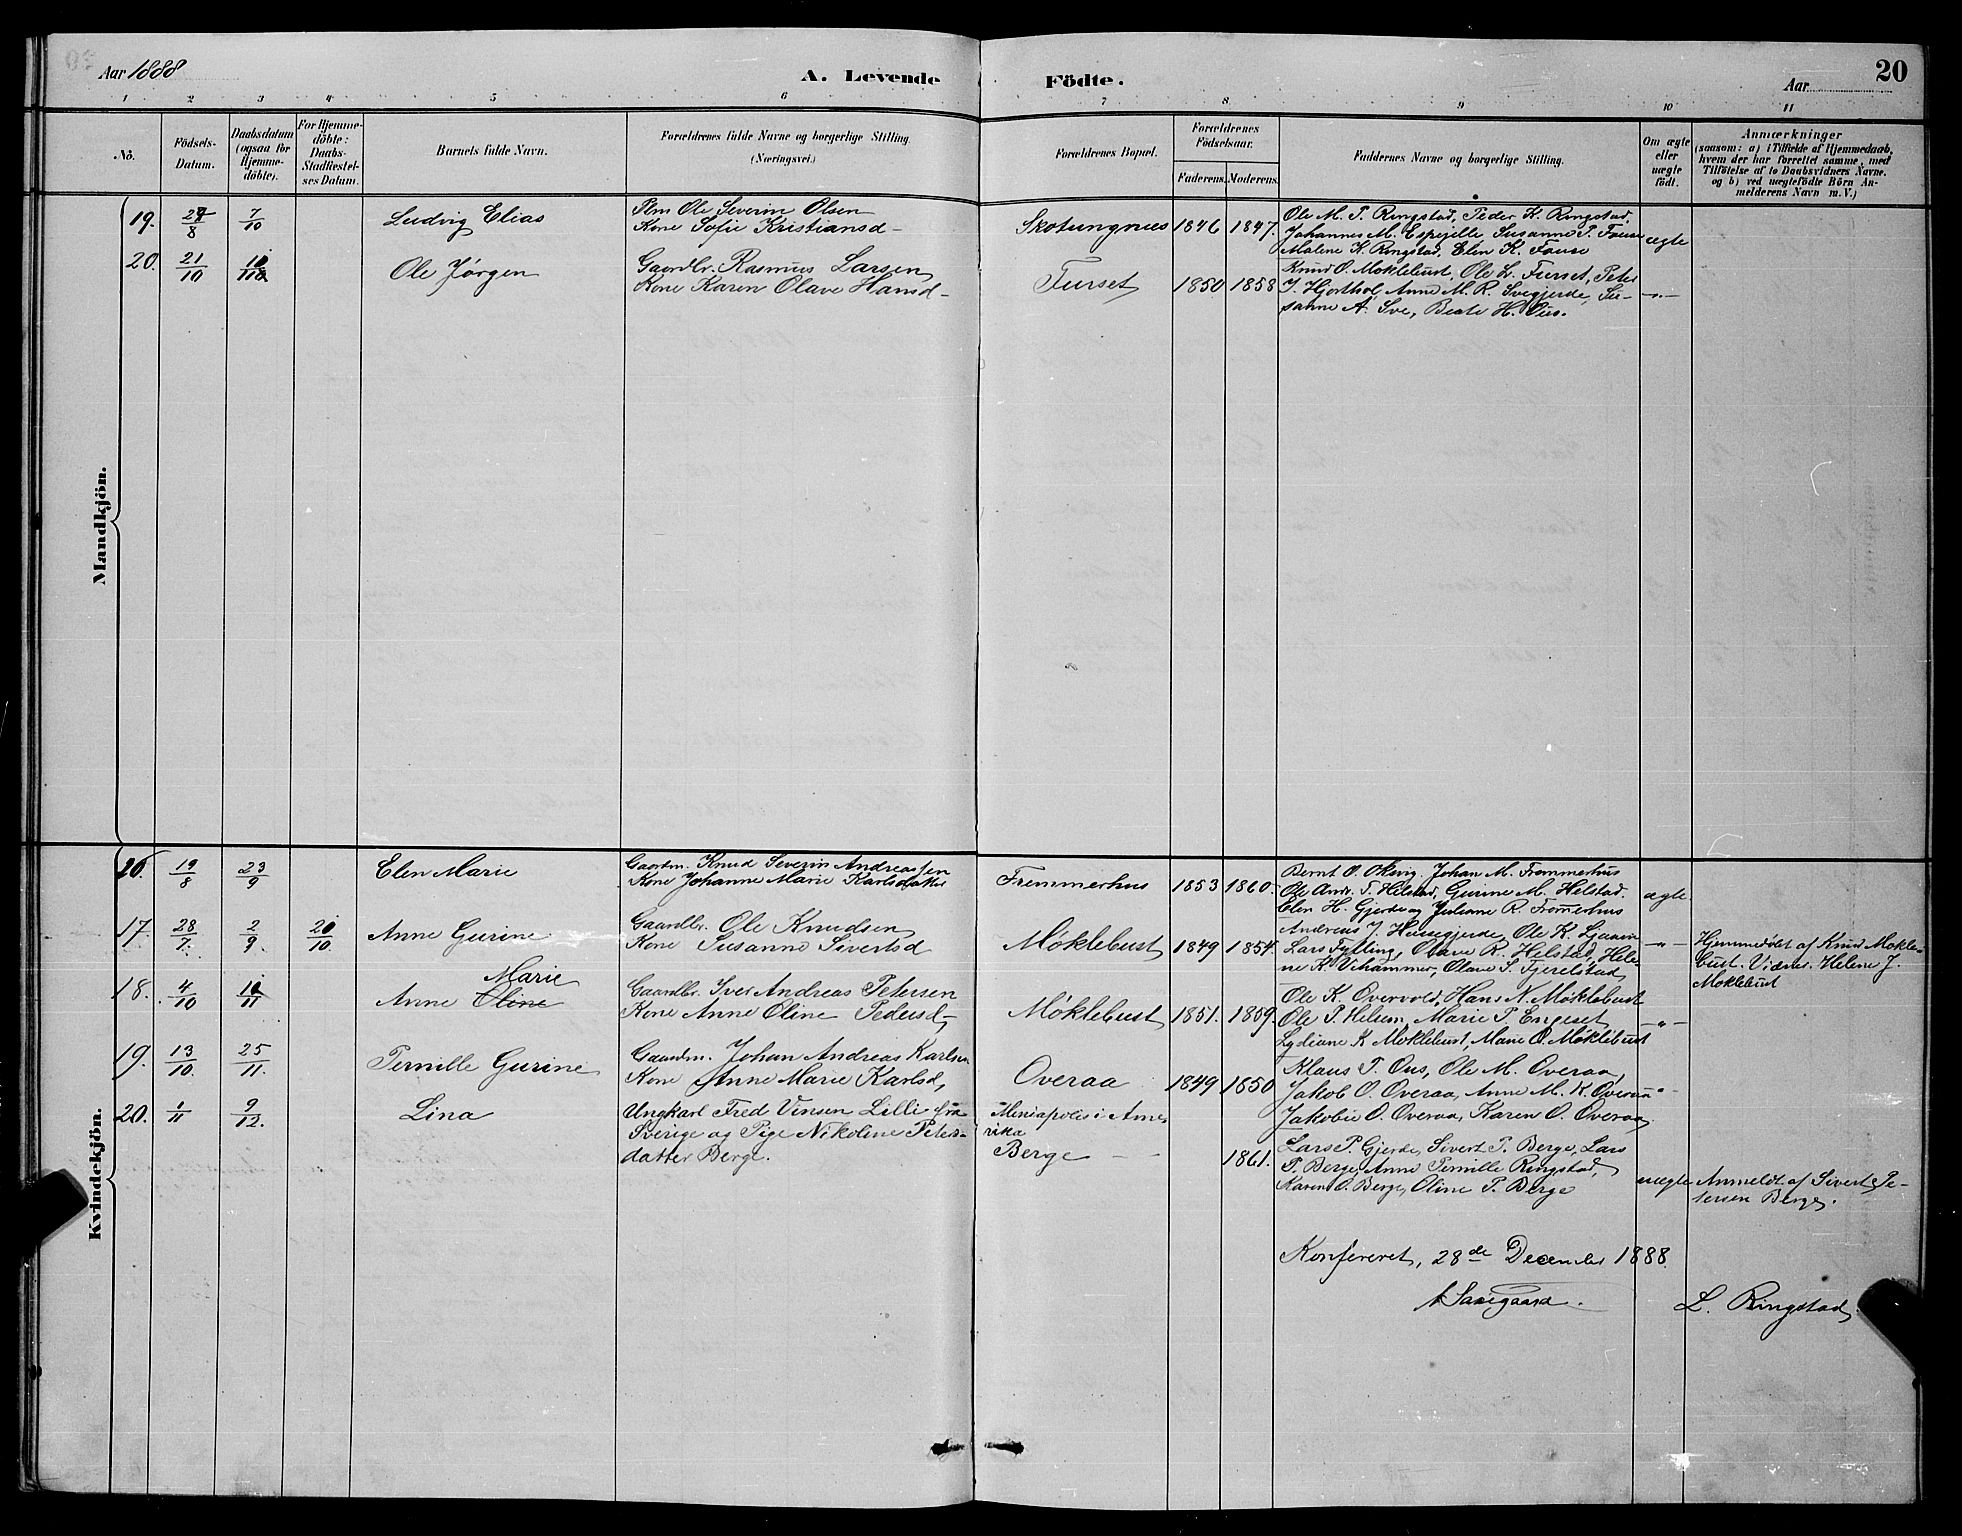 Aar 1888
A. Levende
Födte.
Aar
20
1 2 3 4 5 6 7 8 9 10 11
No.
Födsels-Datum.
Daabsdatum (ogsaa for Hjemme-döbte).
For Hjemme-döbte: Daabs-Stadfestel-ses Datum.
Barnets fulde Navn.
Forældrenes fulde Navne og borgerlige Stilling (Næringsvei.)
Forældrenes Bopæl.
Forældrenes Födselsaar.
Faderens. Moderens.
Faddernes Navne og borgerlige Stilling.
Om ægte eller uægte födt.
Anmærkninger
(saasom: a) i Tilfælde af Hjemmedaab,
hvem der har forrettet samme, med
Tilföielse af to Daabsvidners Navne,
og b) ved uægtefödte Börn An-
melderens Navn m. V.)
Mandkjön.
19. 27/8 7/10 Ludvig Elias
Plm Ole Severin Olsen
Kone Sofie Kristiansd-
Skotungnes 1846 1847.
Ole M. P. Ringstad, Peder K. Ringstad,
Johannes M. Espejelle Susanne P. Fause
Malene K. Ringstad, Elen K. Fause
ægte
20. 21/10 Ole Jørgen
Gaardbr. Rasmus Larsen
Kone Karen Olave Hansd-
Furset 1850 1858
Knud O. Moklebust, Ole L. Furset, Peter
J. Hjorthol, Anne M. R. Svegjerde, Su-
sanne A. Sve, Beate H. Ous.
-"-
Kvindekjön.
16. 19/8 23/9 Elen Marie
Gaardm. Knud Severin Andreassen
Kone Johanne Marie Karlsdatter
Fremmerhus 1853 1860.
Bernt O. Oksvig. Johan M. Frommerhus
Ole Andr. T. Helstad, Gurine M. Helstad.
Elen H. Gjerde og Juliane R. Fromerhus
ægte
17. 28/7. 2/9. 20/10. Anne Gurine
Gaardbr. Ole Knudsen
Kone Susanne Sivertsd
Møklebust 1849 1854.
Andreas J. Hussgjerde, Ole K. Ljaamo
Lars Fylling, Olave R. Helstad, Hele-
ne K. Vehammer, Olave S. Fjerelstad
-"-
Hjemmedøbt af Knud Mokle-
bust. Vidner. Helene J.
Moklebust
18. 4/10 Anne Oline Marie
Gaardbr. Iver Andreas Petersen
Kone Anne Oline Pedersd-
Møklebust 1851. 1859.
Ole K. Overvold, Hans N. Møklebust
Ole P. Helsem, Marie P. Engeset
Lydiane K Moklebust, Marie O. Møklebust
-"-
19. 13/10. 25/11. Pernille Gurine
Gaardm. Johan Andreas Karlsen
Kone Anne Marie Karlsd,
Overaa 1849 1850
Klaus T. Ous, Ole M. Overaa,
Jakob O. Overaa, Anne M. K. Overaa
Jakobie O. Overaa, Karen O. Overaa.
-"-
20. 1/11 9/12. Lina
Ungkarl Fred Vinsen Lilli fra
Sverige og Pige Nikoline Peters-
datter Berge.
Meniapolis i Ame-
rika
Berge
1861.
Lars P. Gjerde, Sivert P. Berge, Lars
P. Berge, Anne Pernille Ringstad,
Karen O. Berge, Oline P. Berge
uægte
Anmeldt af Sivert Pe-
tersen Berge.
Konfereret, 28de December 1888.
Saxegaard.
L. Ringstad